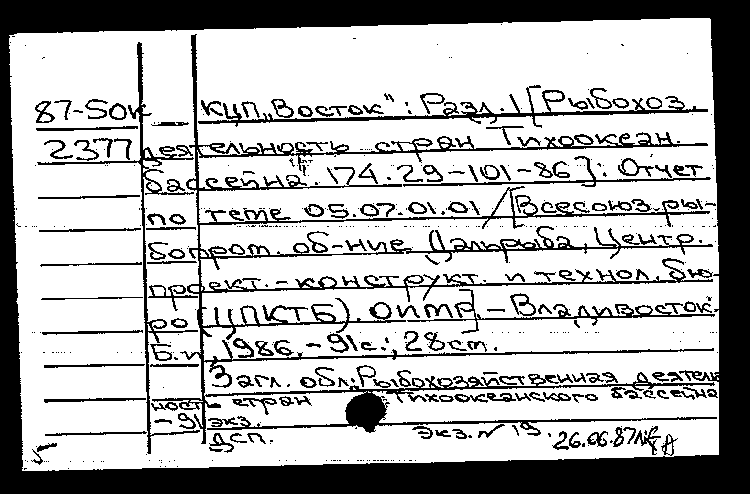 87-5ок КЦП „Восток": Разд. 1 [Рыбохоз.
2377 деятельность стран Тихоокеан.
бассейна". 174.29-101-86]: Отчет
по теме 05.07.01.01/[Всесоюз.ры-
бопром. об-ние Дальрыба, Центр.
проект.-конструкт. и технол. бю-
ро (ЦПКТБ). ОИТР]. - Владивосток:
Б.и., 1986. - 91с.; 28см.
Загл. обл.: Рыбохозяйственная деятель
ность стран Тихоокеанского бассейна
- 91 экз.
ДСП. Экз. № 19. 26.06.87